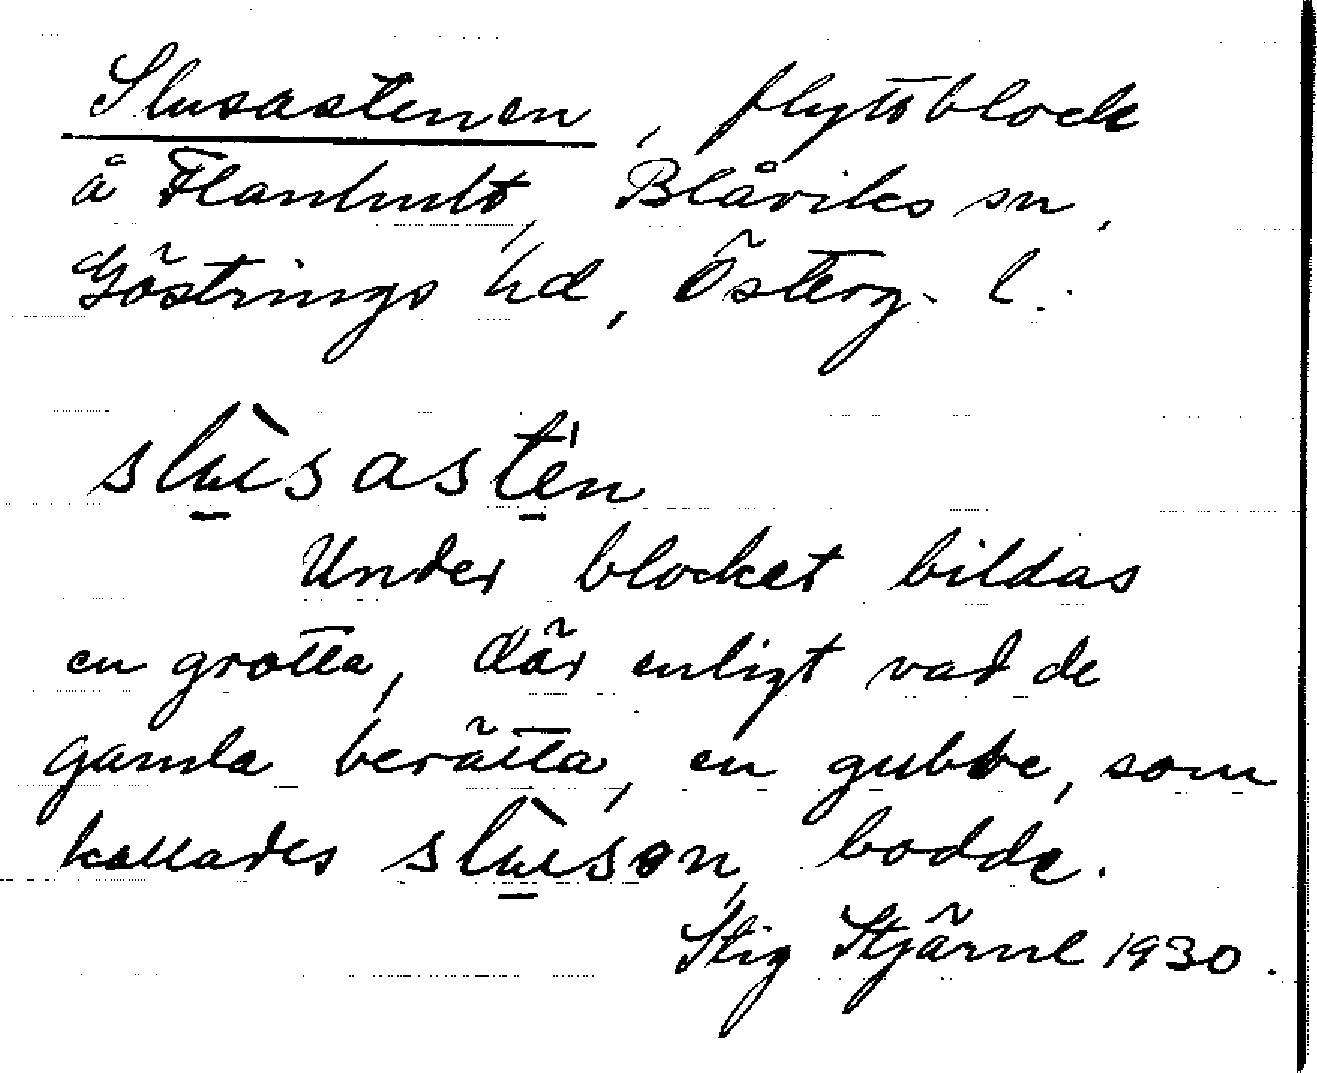 Slusastenen, flyttblock
å Flanhult, Blåviks sn,
Göstrings hd, Österg. l.
slùsasten
Under blocket bildas
en grotta, där enligt vad de
gamla berätta, en gubbe, som
kallades slùsen, bodde.
Stig Stjärne 1930.